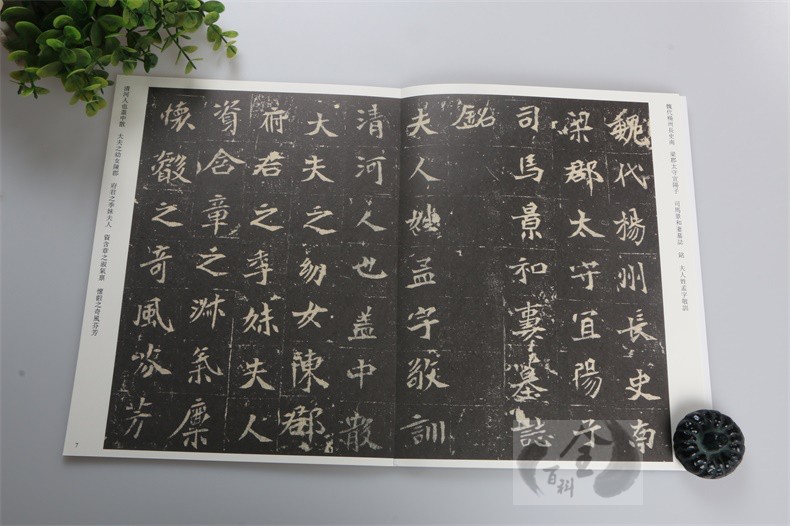 魏代楊州長史南　梁郡太守宜陽子　司馬景和妻墓誌　銘　夫人姓孟字敬訓
魏代楊州長史南
梁郡太守宜陽子
司馬景和妻墓誌
銘
夫人姓孟字敬訓
清河人也蓋中散
大夫之幼女陳郡
府君之季妹夫人
資含章之淑氣稟
懷叡之奇風芬芳
清河人也蓋中散　大夫之幼女陳郡　府君之季妹夫人　資含章之淑氣稟　懷叡之奇風芬芳
7
全
百科